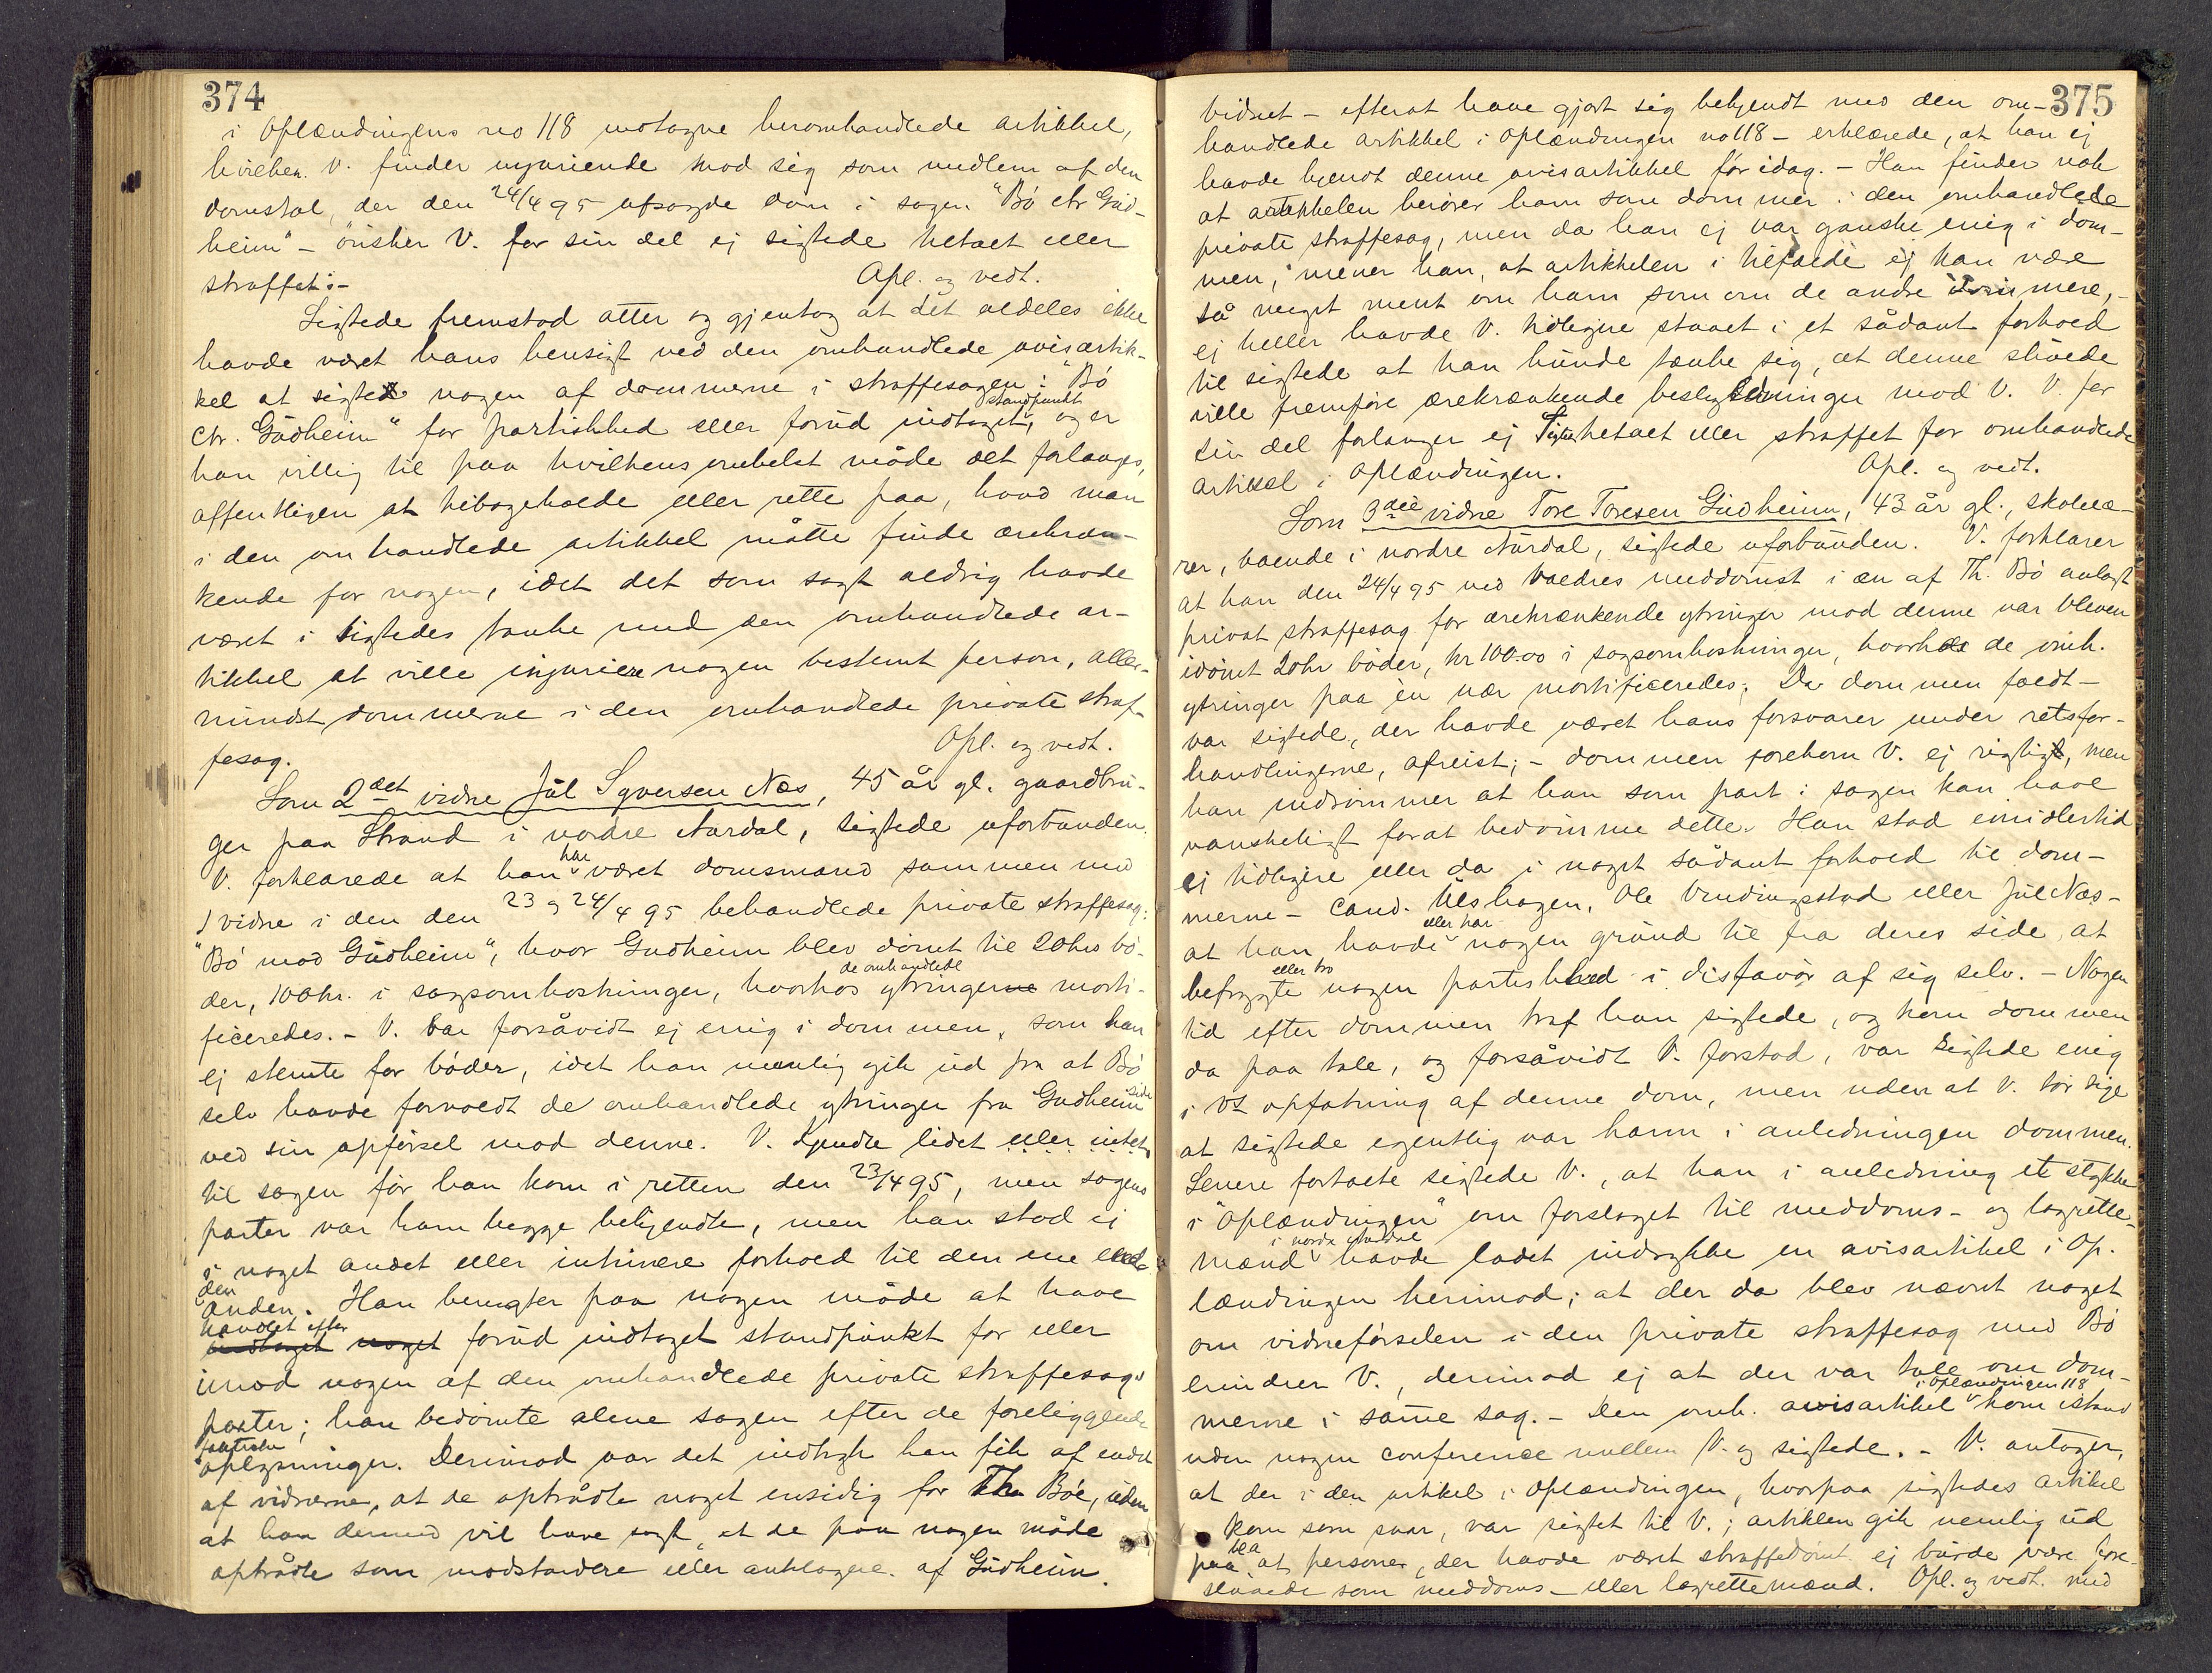 374
i Oplændingens no 118 motagne heromhandlede artikkel,
hvilken V. finder injuriende mod sig som medlem af den
domstol, der den 24/4 95 afsagde dom i sagen "Bö ctr Gud-
heim" - önsker V. for sin del ej sigtede tiltalt eller
straffet. - Opl. og vedt.
Sigtede fremstod atter og gjentog at det aldeles ikke
havde været hans hensigt ved den omhandlede avisartik-
kel at sigte nogen af dommerne i straffesagen: "Bö
ctr. Gudheim" for partiskhed eller forud indtaget standpunkt, og er
han villig til paa hvilkensomhelst måde det forlanges,
offentligen at tilbagekalde eller rette paa, hvad man
i den omhandlede artikkel måtte finde ærekræn-
kende for nogen, idet det som sagt aldrig havde
været i sigtedes tanke med den omhandlede ar-
tikkel at ville injuriere nogen bestemt person, aller-
mindst dommerne i den omhandlede private straf-
fesag. Opl. og vedt.
Som 2det vidne Jul Syversen Næs, 45 år gl. gaardbru-
ger paa Strand i nordre Aurdal, sigtede uforbunden.
V. forklarede at han har været domsmand sammen med
1 vidne i den den 23 og 24/4 95 behandlede private straffesag:
"Bö mod Gudheim", hvor Gudheim blev dömt til 20 krs bö-
der, 100 kr. i sagsomkostninger, hvorhos de omhandlede ytringerne morti-
ficeredes. - V. var forsåvidt ej enig i dommen, som han
ej stemte for böder, idet han nemlig gik ud fra at Bö
selv havde forvoldt de omhandlede ytringer fra Gudheims side
ved sin opförsel mod denne. V. kjendte lidet eller intet
til sagen för han kom i retten den 23/4 95, men sagens
parter var ham begge bekjendte, men han stod ej
i noget andet eller intimere forhold til den ene end
den anden. Han benegter paa nogen måde at have
handlet efter indtaget noget forud indtaget standpunkt for eller
imod nogen af den omhandlede private straffesags
parter; han bedömte alene sagen efter de foreliggende
faktiske oplysninger. Derimod var det indtryk han fik af endel
af vidnerne, at de optrådte noget ensidig for Th. Böe, uden
at han dermed vil have sagt, at de paa nogen måde
optrådte som modstandere eller anklagere af Gudheim.
375
vidnet - efterat have gjort sig bekjendt med den om-
handlede artikkel i Oplændingen no 118 - erklærede, at han ej
havde kjendt denne avisartikkel för idag. - Han finder nok
at artikkelen berörer ham som dommer i den omhandlede
private straffesag, men da han ej var ganske enig i dom-
men, mener han, at artikkelen i tilfælde ej kan være
så meget ment om ham som om de andre dommere, -
ej heller havde V. tidligere staaet i et sådant forhold
til sigtede at han kunde tænke sig, at denne skulde
ville fremföre ærekrænkende beskyldninger mod V. V. for
sin del forlanger ej Sigtede tiltalt eller straffet for omhandlede
artikel i Oplændingen. Opl. og vedt.
Som 3die vidne Tore Toresen Gudheim, 43 år gl., skolelæ-
rer, boende i nordre Aurdal, sigtede uforbunden. V. forklarer
at han den 24/4 95 ved Valdres meddomsret i en af Th. Bö anlagt
privat straffesag for ærekrænkende ytringer mod denne var bleven
idömt 20 kr böder, kr 100.00 i sagsomkostninger, hvorhos de omh.
ytringer paa en nær mortificeredes. Da dommen faldt -
var sigtede, der havde været hans forsvarer under retsfor-
handlingerne, afreist; - dommen forekom V. ej rigtig, men
han indrömmer at han som part i sagen kan have
vanskeligt forat bedömme dette. Han stod imidlertid
ej tidligere eller da i noget sådant forhold til dom-
merne - cand. Ulshagen, Ole Vrudingsstad eller Jul Næs -
at han havde eller har nogen grund til fra deres side at
befrygte eller tro nogen partiskhed i disfavör af sig selv. - Nogen
tid efter dommen traf han sigtede, og kom dommen
da paa tale, og forsåvidt V. forstod, var Sigtede enig
i Vs opfatning af denne dom, men uden at V. tör sige
at sigtede egentlig var harm i anledningen dommen.
Senere fortalte sigtede V., at han i anledning et stykke
i "Oplændingen" om forslaget til meddoms- og lagrette-
mænd i nordre Aurdal havde ladet indrykke en avisartikel i Op-
lændingen herimod; at der da blev nævnt noget
om vidneförselen i den private straffesag med Bö
erindrer V., derimod ej at der var tale om dom-
merne i samme sag. - Den omh. avisartikel i Oplændingen 118 kom istand
uden nogen conference mellem V. og sigtede. - V. antager,
at der i den artikel i Oplændingen, hvorpaa sigtedes artikel
kom som svar, var sigtet til V.; artiklen gik nemlig ud
paa bl a at personer, der havde været straffedömt ej burde være fore-
slaaede som meddoms- eller lagrettemænd. Opl. og vedt. med